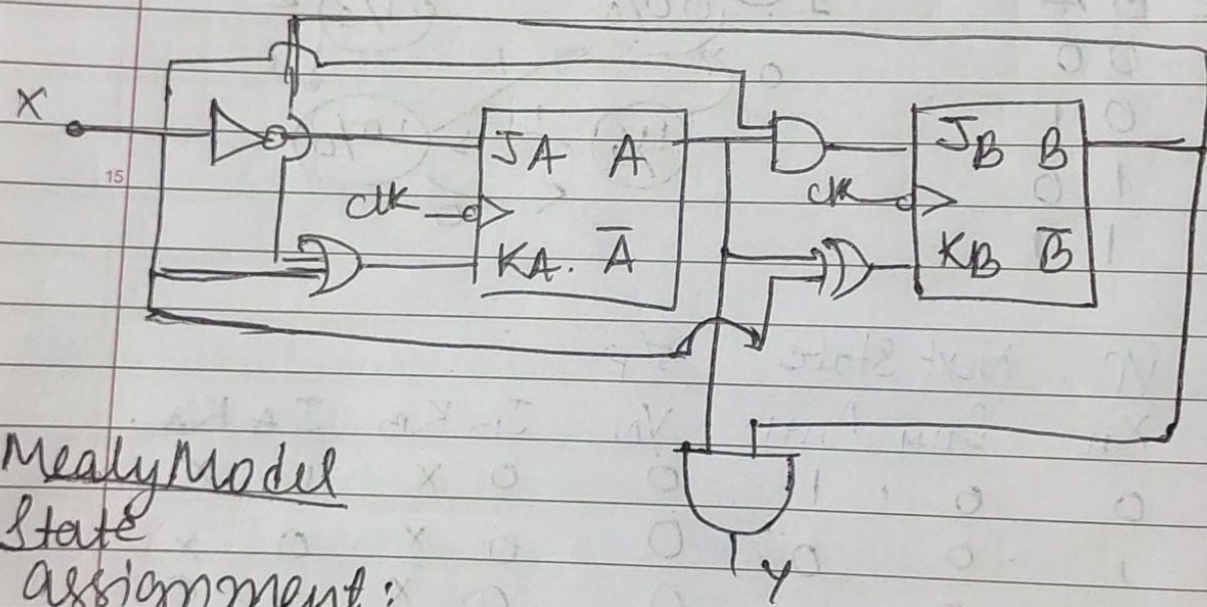 X
15
JA A
clk
KA. A̅
JB B
clk
KB B̅
Mealy Model
State
assignment:
Y